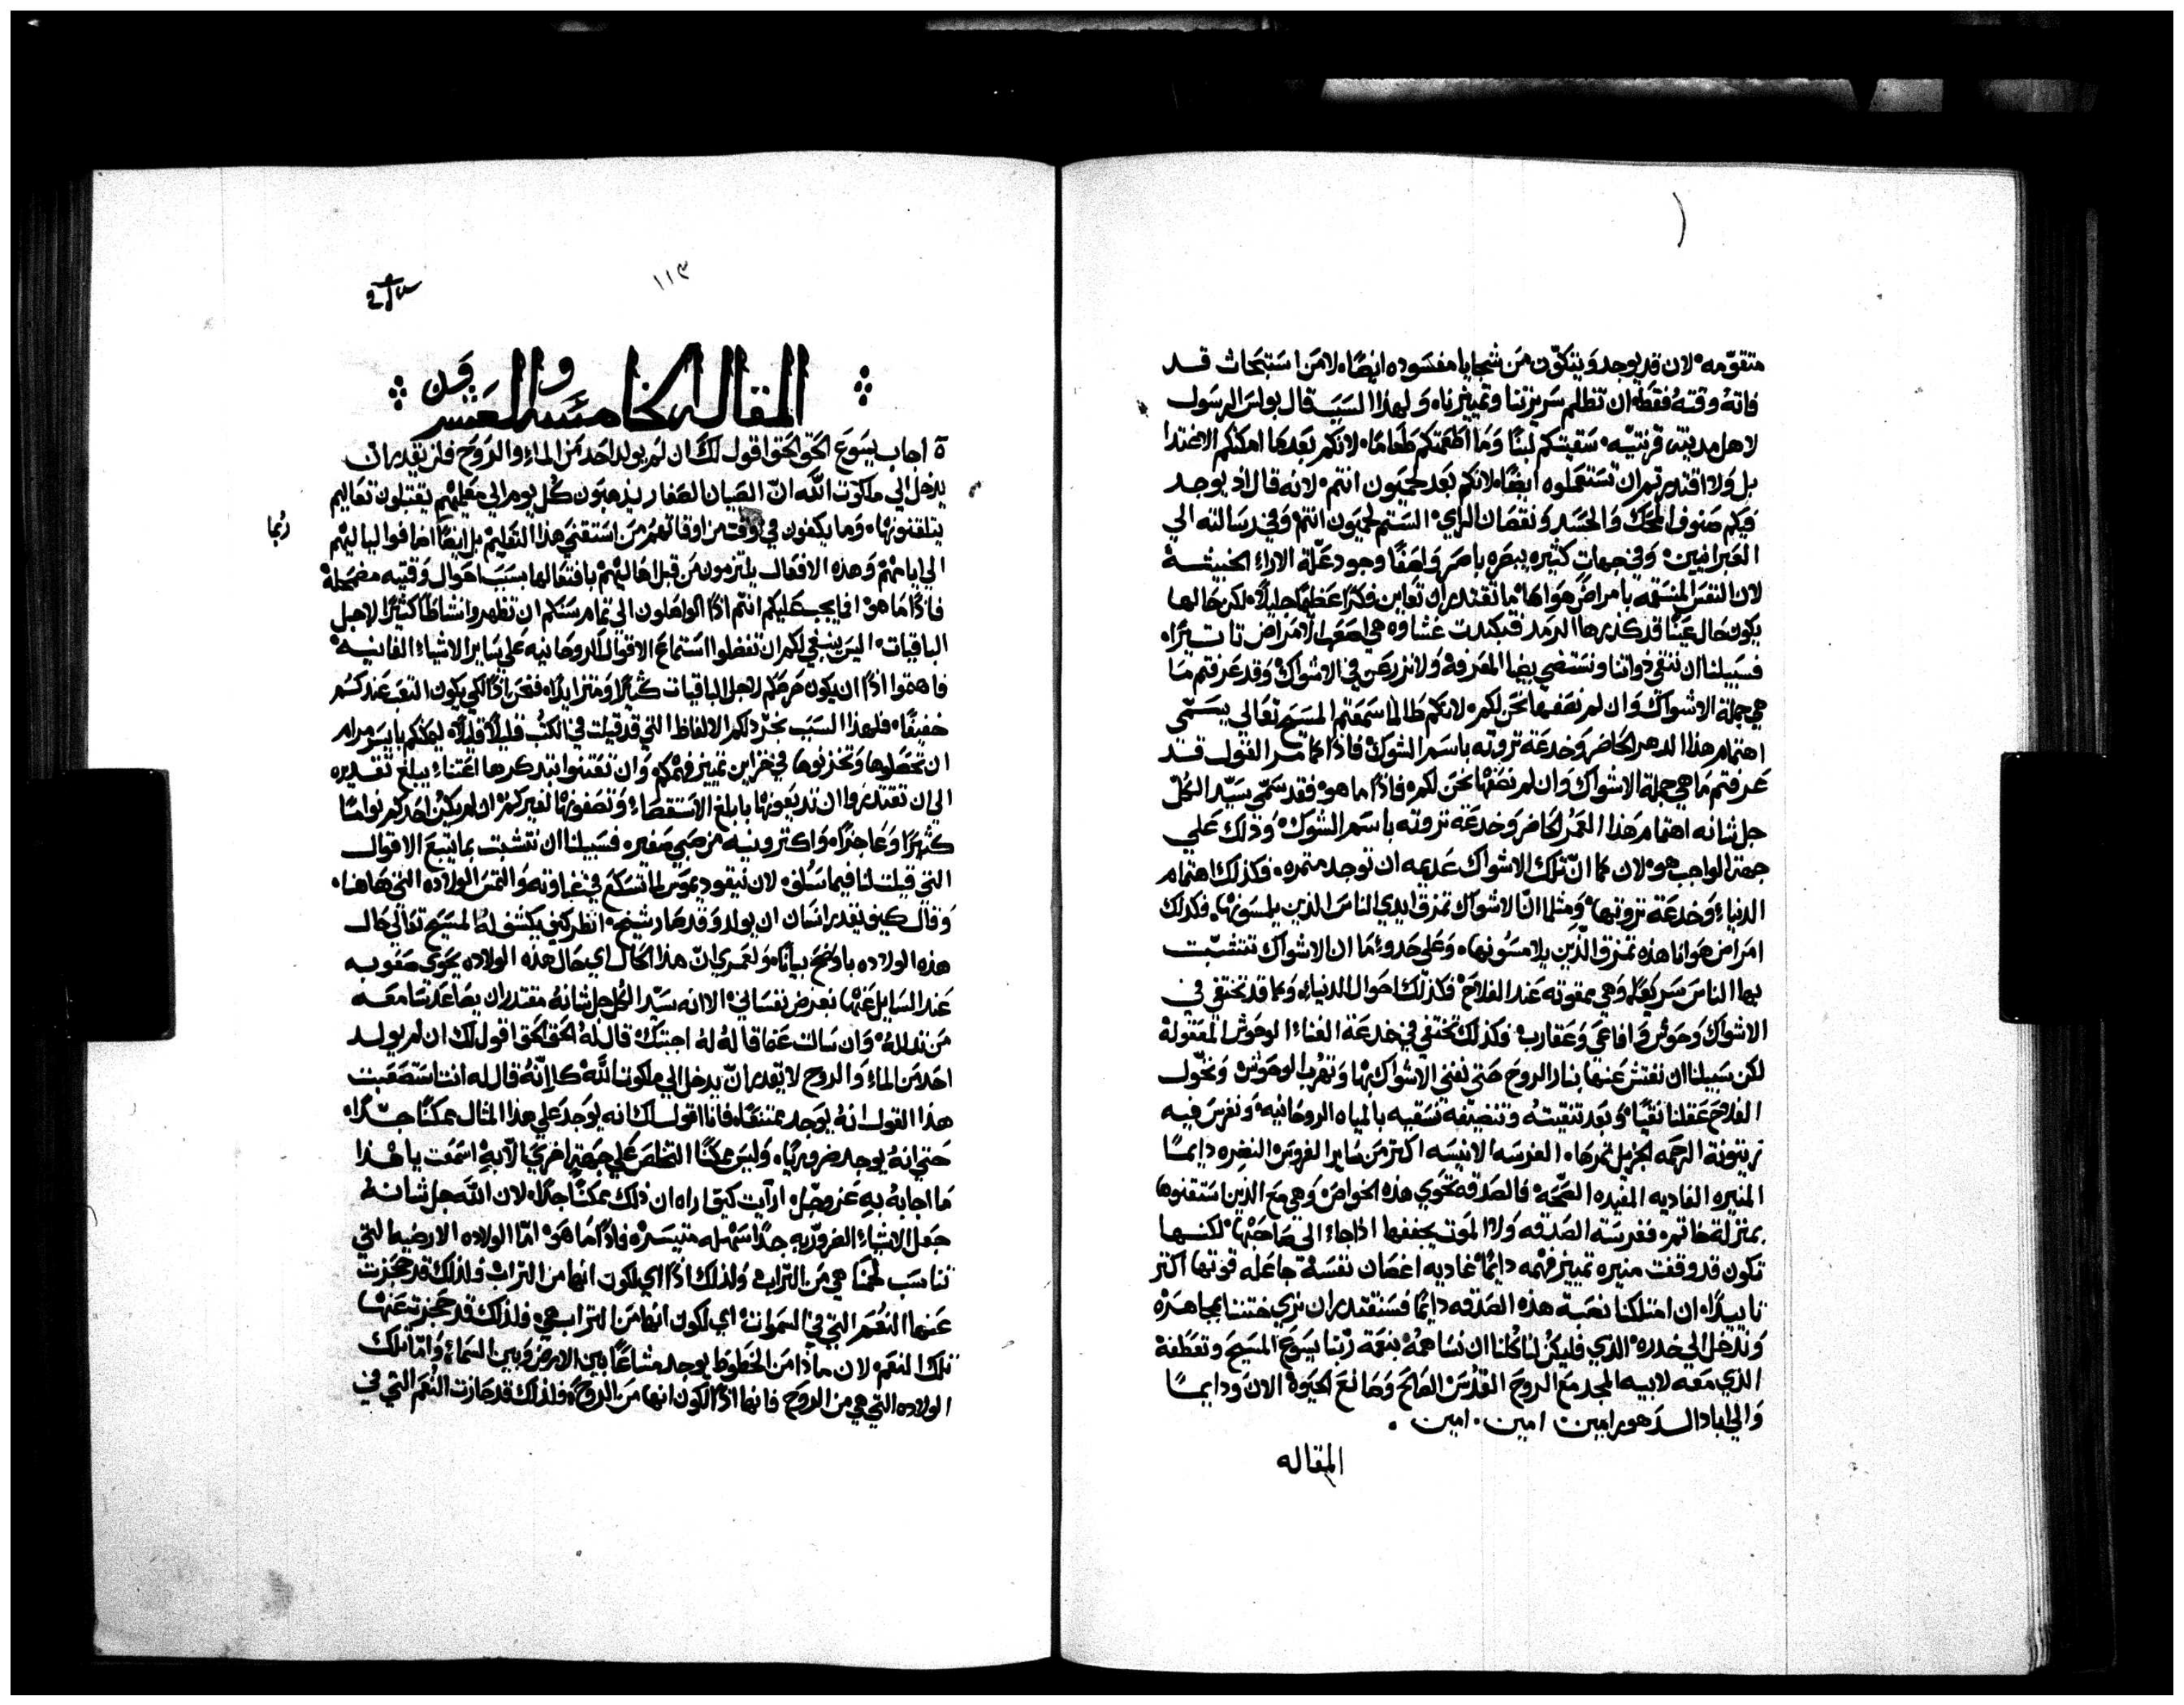 متقوّمه لان قد يوجد ويتكوّن من شجايا مفسوده ايضًا لا من استبحاث قد
فاته وقته فقط ان تظلم سريرتنا وتمييزنا ولهذا السبب قال بولس الرسول
لاهل مدينة قرنتيه سقيتكم لبنًا وما اطعمتكم طعامًا لانكم بعدما امكنكم الاغتدا
بل ولا اقتدرتم ان تستعملوه ايضًا لانكم بعد لحميون انتم لانه قال اذ يوجد
فيكم صنوف المحك والحسد ونقصان الراي السنم لحميون انتم وفي رسالته الي
العبرانيين وفي جهات كثيره يبصره باصر واصفًا وجود علّة الاراء الخبيثة
لان النفس المنسقمه بامراض هواها ما تقتدر ان تعاين فكرًا عظيمًا جليلًا لكن حالها
يكون حال عينًا قد كذرها الرمد فيكندت غشاوه هي اصعب الامراض تاتيرًا
فسبيلنا ان ننقي ذواتنا ونستضي بضيا المعرفة ولا نزرعن في الاشواك وقد عرفتم ما
هي جملة الاشواك وان لم نصفها نحن لكم لانكم طالما سمعتم المسيح تعالي يسمّي
اهتمام هذا الدهر الحاضر وخدعة تروته باسم الشوك فاذًا كما مر القول قد
عرفتم ما هي جملة الاشواك وان لم نصفها نحن لكم فاذًا ما هو فقد سمّي سيّد الكلّ
جل شانه اهتمام هذا العمر الحاضر وخدعة تروته باسم الشوك وذلك علي
جهة الواجب هو لان كما انّ تلك الاشواك عديمه ان توجد متمره فكذلك اهتمام
الدنيا وخدعة تروتها ومثلما انّ الاشواك تمزق ايدي الناس الذين يلمسونها فكذلك
امراض هوانا هذه تمزق الّذين يلامسونها وعلي حذو ما ان الاشواك تتشبّت
بها الناس سريعًا وهي ممقوته عند الفلاح فكذلك احوال الدنيا وكما قد تختفي في
الاشواك وحوش وافاعي وعقارب فكذلك تختفي في خدعة الغناء الوحوش المعقولة
لكن سبيلنا ان نفتش عنها بنار الروح حتي نفني الاشواك بها وتهرب الوحوش ونخوّل
الفلاح عقلنا نقيًا وبعد تنقيته وتنضيفه نسقيه بالمياه الروحانيه ونغرس فيه
زيتونة الرحمه الجزيل تمرها الغرسه الانيسه اكتر من ساير الغروس النضره دايمًا
المنيره الغاديه المفيده الصّحة فالصدقه تحوي هذه الخواص وهي مع الذين استقنوها
بمنزلة خاتم فغرسة الصدقه ولا الموت يجففها اذا جاء الي صاحبها لكنها
تكون قد وقفت منيره تمييز فهمه دايمًا غاديه اعصان نفسة جاعله قوتها اكتر
تاييدًا ان امتلكنا نصبة هذه الصدقه دايمًا فسنقتدر ان نري ختننا بمجاهره
وندخل الي خدره الذي فليكن لنا كلنا ان نساهمه بنعمة ربّنا يسوع المسيح وتعطفه
الذي معه لابيه المجد مع الروح القدس الصالح وصانع الحيوة الان ودايمًا
والي اباد الدهور امين امين امين
المقاله
١١٣
المقاله الخامسه والعشرون
ة اجاب يسوع الحق الحق اقول لك ان لم يولد احد من الماء والروح فلن يقدر ان
يدخل الي ملكوت الله انّ الصبيان الصغار يذهبون كل يوم الي معلّمهم يقتبلون تعاليم
يتلقنونها وما يكفون في وقت من اوقاتهم من استقني هذا التعليم بل ايضًا اضافوا لياليهم
الي ايامهم وهذه الافعال يلتزمون من قبل اهاليهم بافتعالها بسبب احوال وقتيه مضمحلة
فاذًا ما هو افما يجب عليكم انتم اذًا الواصلون الي تمام سنكم ان تظهروا نشاطًا كثيرًا لاجل
الباقيات اليس ينبغي لكم ان تفضلوا استماع الاقوال الروحانيه علي ساير الاشياء الفانيه
فاهتموا اذًا ان يكون حرصكم لاجل الباقيات كثيرًا ومتزايدًا فنحن اذًا لكي يكون التعب عندكم
خفيفًا فلهذا السبب نجرّد لكم الالفاظ التي قد قيلت في الكتب قليلًا قليلًا ليمكنكم بايسر مرام
ان تحصلوها وتخزنوها في خزاين تمييز فهمكم وان تعتنوا بتذكرها اعتناء يبلغ تقديره
الي ان تقتدروا ان تديعونها بابلغ الاستقصاء وتصفونها لغيركم ان لم يكن احدكم نوامًا
كثيرًا وعاجزًا واكتر ونيه من صبي صغير فسبيلنا ان نتشبت بما يتبع الاقوال
التي قيلت لنا فيما سلف لان نيقوديموس لما تسكع في غباوته والتمس الولاده التي هاهنا
وقال كيف يقدر انسان ان يولد وقد صار شيخ انظر كيف يكشف له المسيح تعالي حال
هذه الولاده باوضح بيانًا ولعمري انّ هذا الحال اي حال هذه الولاده يحوي صعوبه
عند السايل عنها بغرض نفساني الا انه سيّد الكل جل شانه مقتدر ان يصاعد سامعه
من تذلله وان سالت عما قاله له اجبتك قال له الحق الحق اقول لك ان لم يولد
احد من الماء والروح لا يقدر انّ يدخل الي ملكوت اللّه كانّه قال له انت استصعبت
هذا القول انه يوجد ممتنعًا فانا اقول لك انه يوجد علي هذا المثال ممكنًا جدًا
حتي انه يوجد ضروريًا وليس ممكنًا التخلص علي جهة اخري الّا به اسمعت يا هذا
ما اجابه به عز وجل ارايت كيف اراه ان ذلك ممكنًا جدًا لان اللّه جل شانه
جعل الاشياء الضروّريه جدًا سهله متيسره فاذًا ما هو امّا الولاده الارضيه التي
تناسب لحمنا هي من التراب ولذلك اذًا اي لكون انها من التراب ولذلك قد حجزت
عنها النعم التي في السموات اي لكون انها من التراب هي فلذلك قد حجزت عنها
تلك النعم لان ماذا من الخطوط يوجد مشاعًا بين الارض وبين السماء وامّا تلك
الولاده التي هي من الروح فانها اذًا لكون انها من الروح فلذلك قد حازت النعم التي في